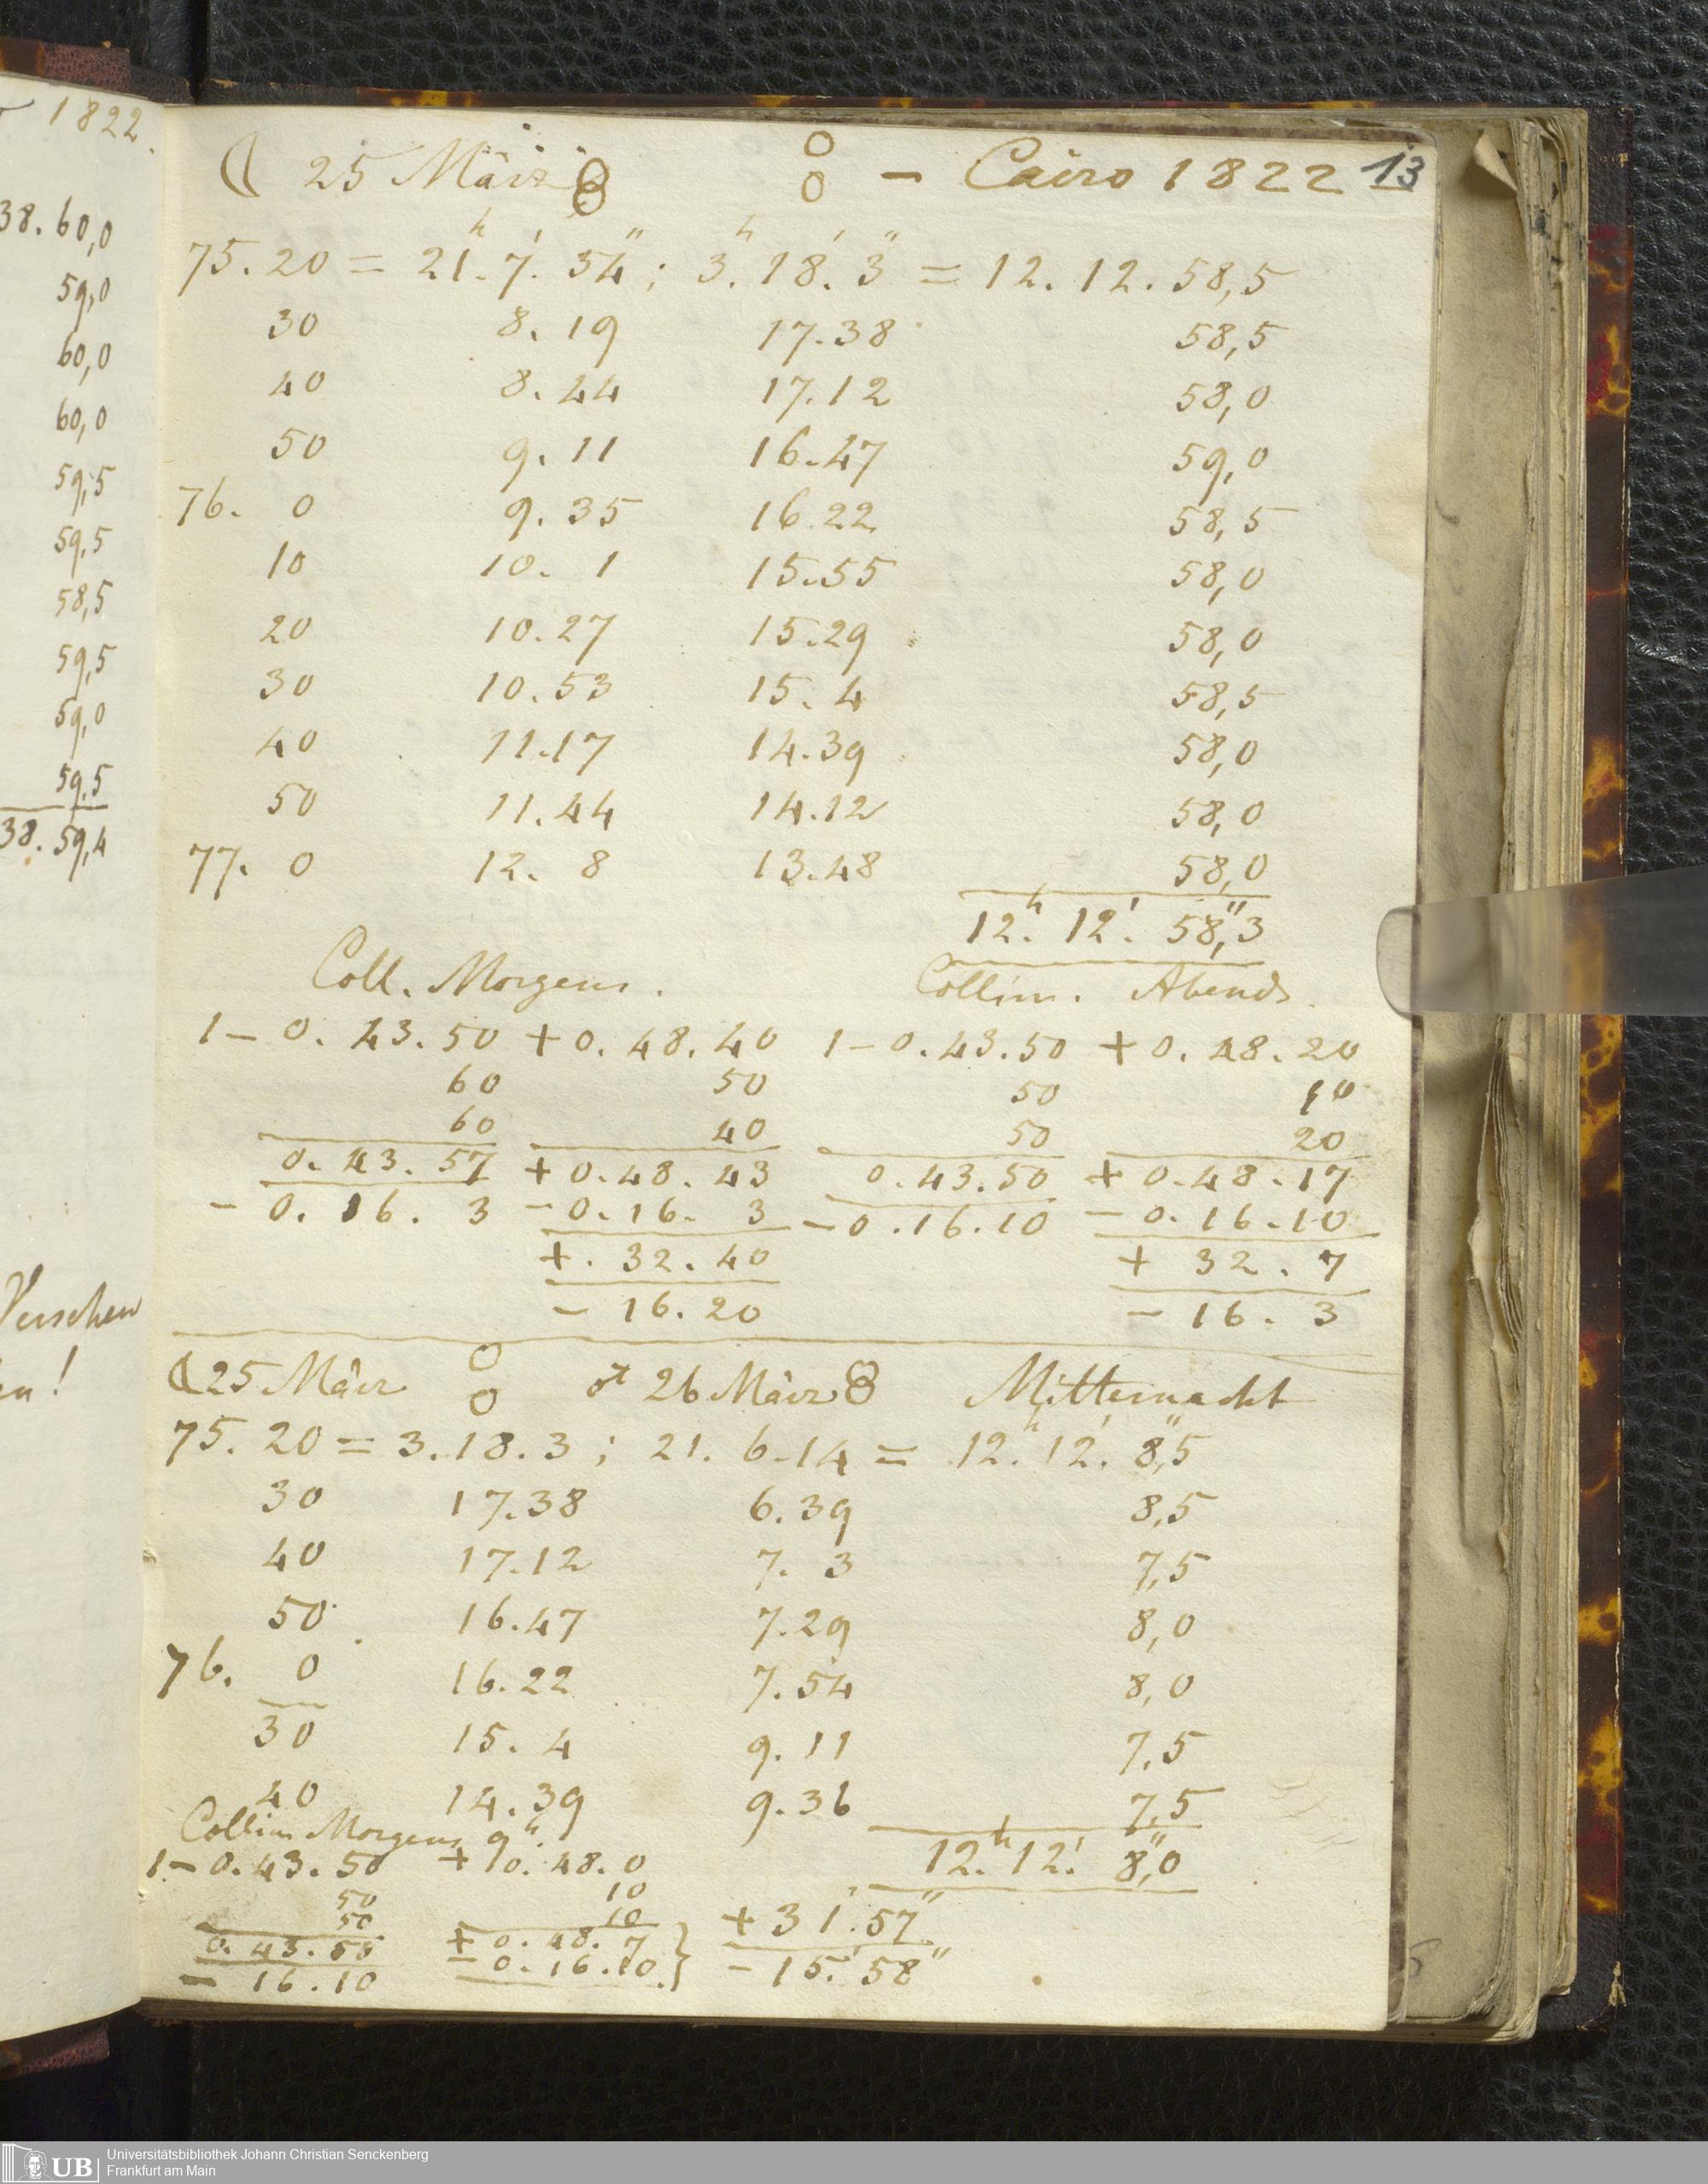 1822.
38.60,0
59,0
60,0
60,0
59,5
59,5
58,5
59,5
59,0
59,5
38.59,4
Versehen
en!
☾ 25 März 8 – Cairo 1822 13
75.20 = 21.h 7.' 54"; 3.h 18.' 3" = 12.12.58,5
30 8.19 17.38 58,5
40 8.44 17.12 58,0
50 9.11 16.47 59,0
76. 0 9.35 16.22 58,5
10 10. 1 15.55 58,0
20 10.27 15.29 58,0
30 10.53 15. 4 58,5
40 11.17 14.39 58,0
50 11.44 14.12 58,0
77. 0 12. 8 13.48 58,0
12.h 12.' 58,"3
Coll. Morgens. Collim. Abends.
1 – 0.43.50 + 0.48.40 1 – 0.43.50 + 0.48.20
60 50 50 10
60 40 50 20
0.43.57 + 0.48.43 0.43.50 + 0.48.17
– 0.16. 3 – 0.16. 3 – 0.16.10 – 0.16.10
+ . 32.40 + 32. 7
– 16.20 – 16. 3
☾ 25 März ♂ 26 März 8 Mitternacht
75.20 = 3.18.3; 21. 6.14 = 12.h 12.' 8,"5
30 17.38 6.39 8,5
40 17.12 7. 3 7,5
50 16.47 7.29 8,0
76. 0 16.22 7.54 8,0
30 15. 4 9.11 7,5
40 14.39 9.36 7,5
Collim Morgens 9h. 12.h 12.' 8,"0
1 – 0.43.50 + 0.48.0
50 10
50 10 + 31.'57"
0.43.50 + 0.48. 7
– 16.10 – 0.16.10 – 15.'58"
UB Universitätsbibliothek Johann Christian Senckenberg
Frankfurt am Main